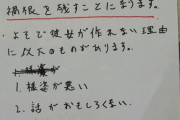 禍根を残すことになります。
・よそで彼女が作れない理由
に以下のものがあります。
1. 容姿が悪い
2. 話がおもしろくない。